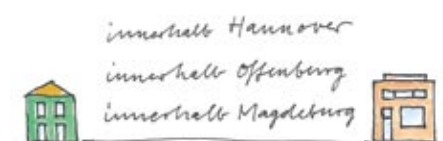 innerhalb Hannover
innerhalb Offenburg
innerhalb Magdeburg